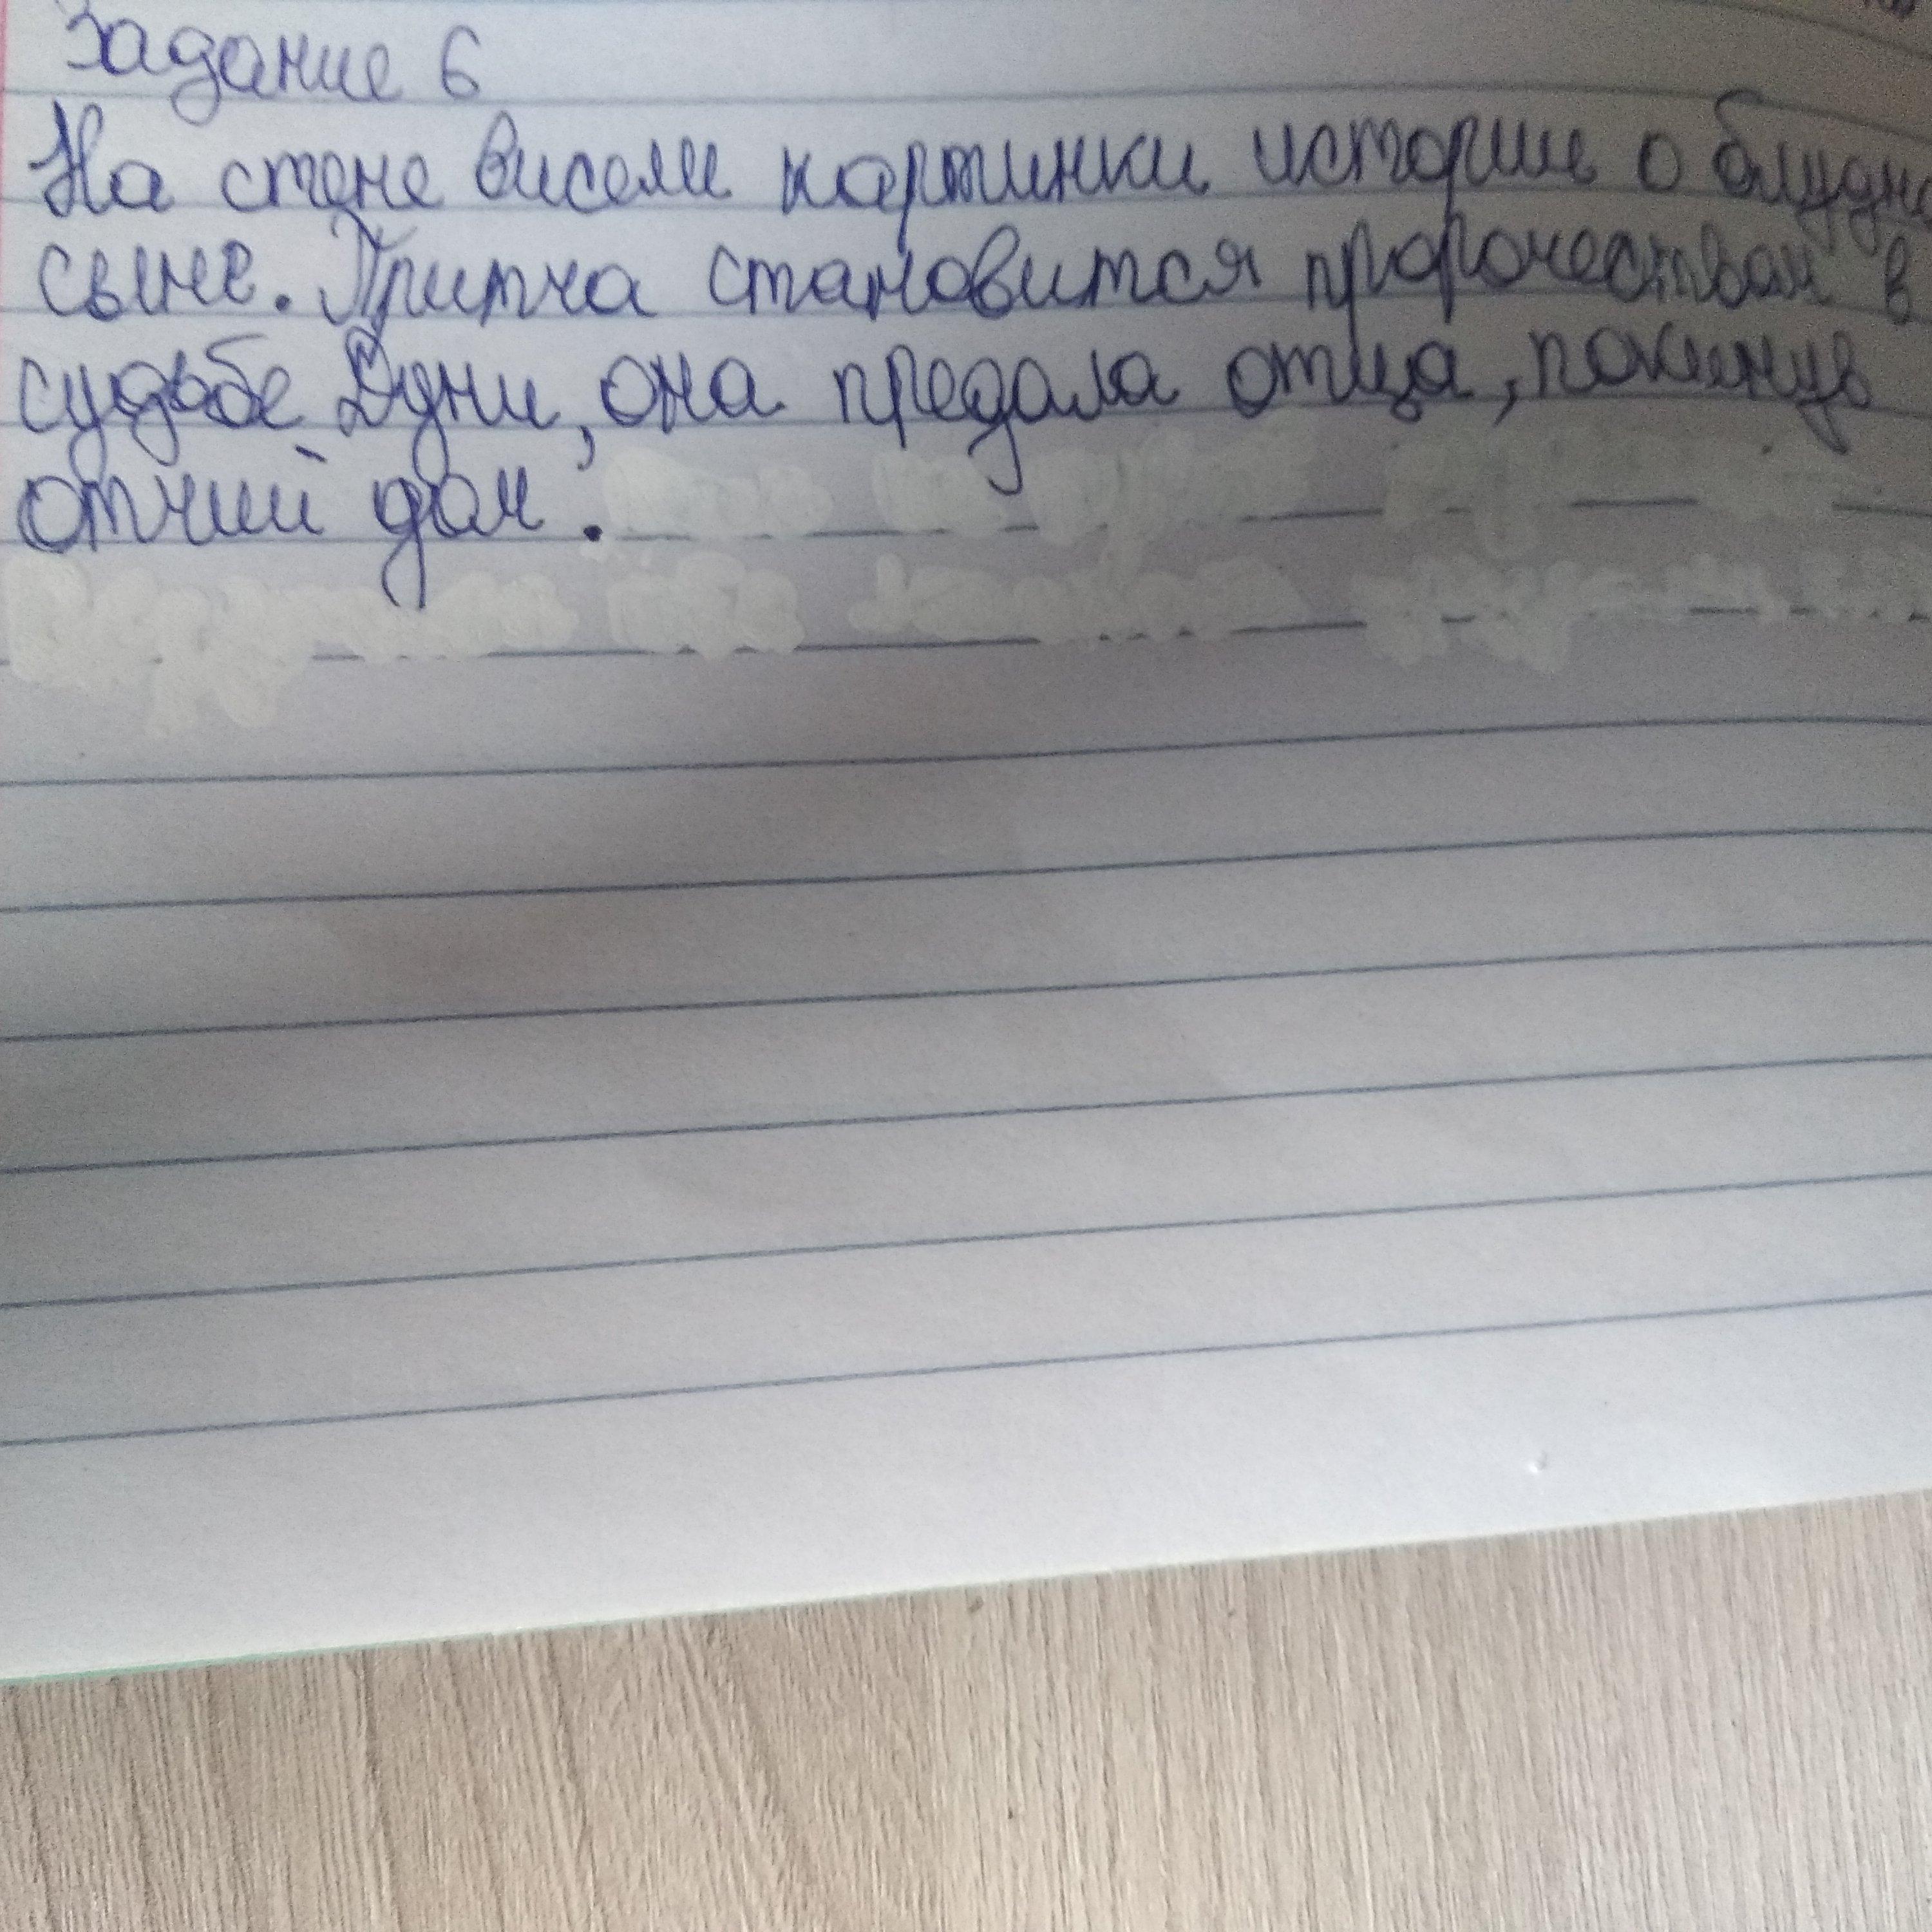 Задание 6
На стене висели картинки истории о блудно
сыне. Притча становится пророчеством в
судьбе Дуни, она предала отца, покинув
отчий дом.